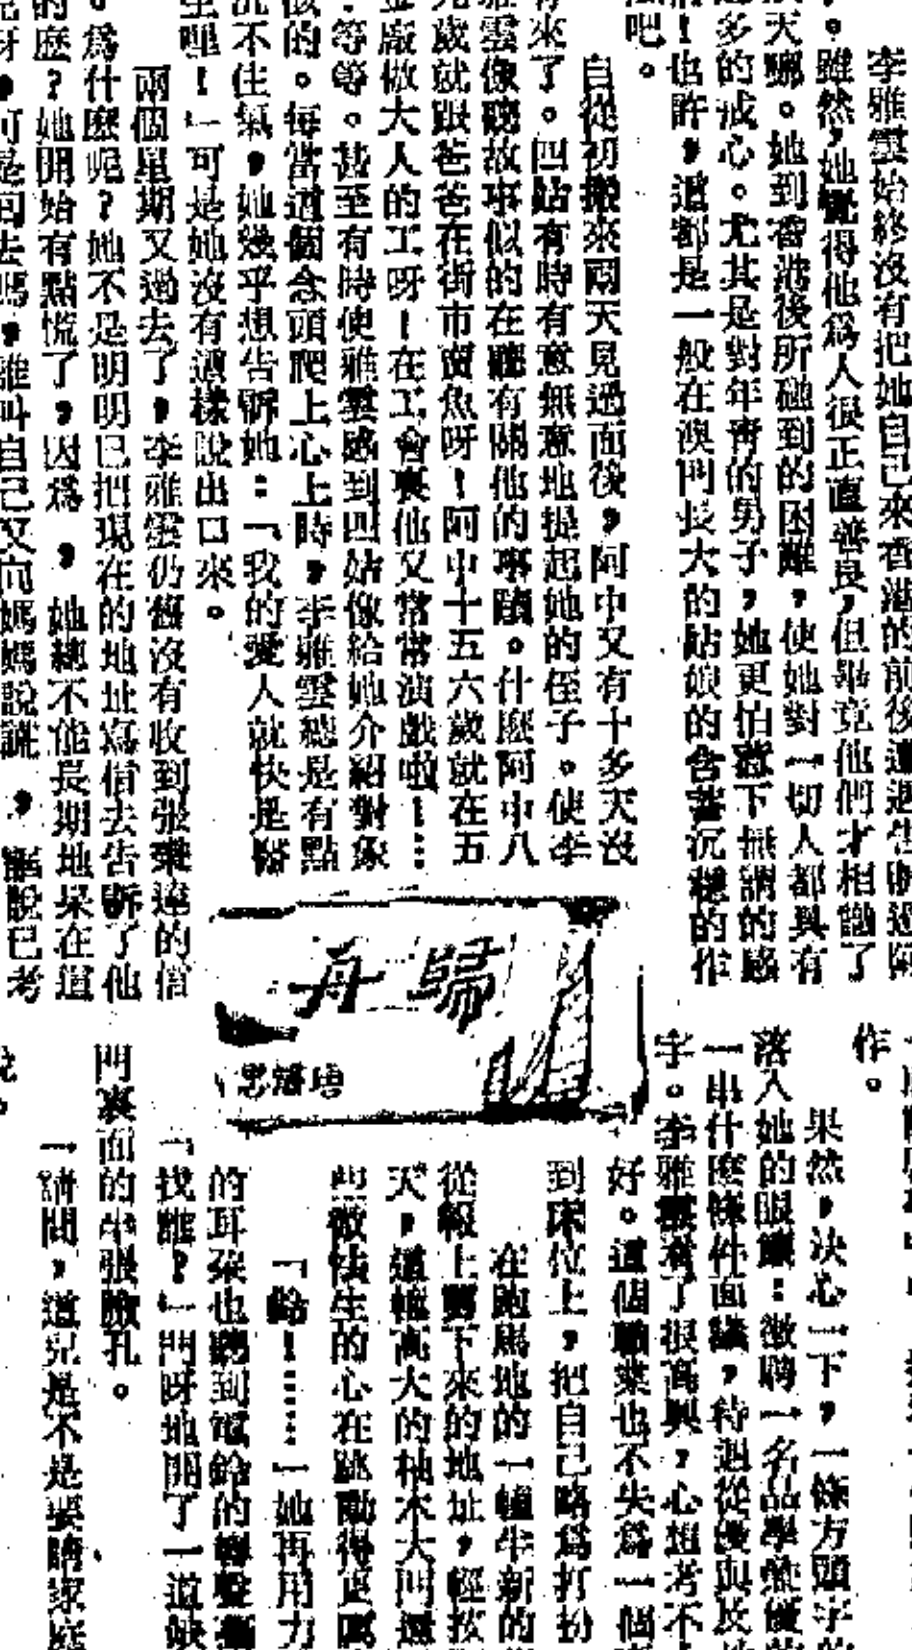 李雅雲始終沒有把她自己來香港的前後遭遇告訴過阿
。雖然，她覺得他爲人很正直善良，但畢竟他們才相識了
天啊。她到香港後所碰到的困難，使她對一切人都具有
多的戒心。尤其是對年靑的男子，她更怕惹下無謂的感
！也許，這都是一般在澳門長大的姑娘的含蓄沉穩的作
吧。
自從初搬來兩天見過面後，阿中又有十多天沒
來了。四姑有時有意無意地提起她的侄子。使李
雅雲像聽故事似的在聽有關他的事蹟。什麽阿中八
九歲就跟爸爸在街市賣魚呀！阿中十五六歲就在五
金廠做大人的工呀！在工會裏他又常常演戲啦！…
等等。甚至有時使雅雲感到四姑像給她介紹對象
似的。每當這個念頭爬上心上時，李雅雲總是有點
沉不住氣，她幾乎想告訴她：「我的愛人就快是醫
生哩！」可是她沒有這樣說出口來。
兩個星期又過去了，李雅雲仍舊沒有收到張秉達的信
。爲什麽呢？她不是明明已把現在的地址寫信去告訴了他
的麽？她開始有點慌了，因爲，她總不能長期地呆在這
兒呀，可是回去嗎，誰叫自己又向媽媽說謊，說已考
再歸
作。
果然，決心一下，一條方頭字
落入她的眼簾：徵聘一名品學兼優
一串什麽條件面議，待遇從優與
字。李雅雲看了很高興，心想考不
好。這個職業也不失爲一個
到床位上，把自己略爲打扮
在跑馬地的一幢半新的
從報上剪下來的地址，輕按
天，這幢高大的柚木大門還
些微怯生的心在跳動得更
「鈴！……」她再用力
的耳朵也聽到電鈴的
「找誰？」門呀地開了一道
門裏面的半張臉孔。
「請問，這兒是不是要請家庭
說。